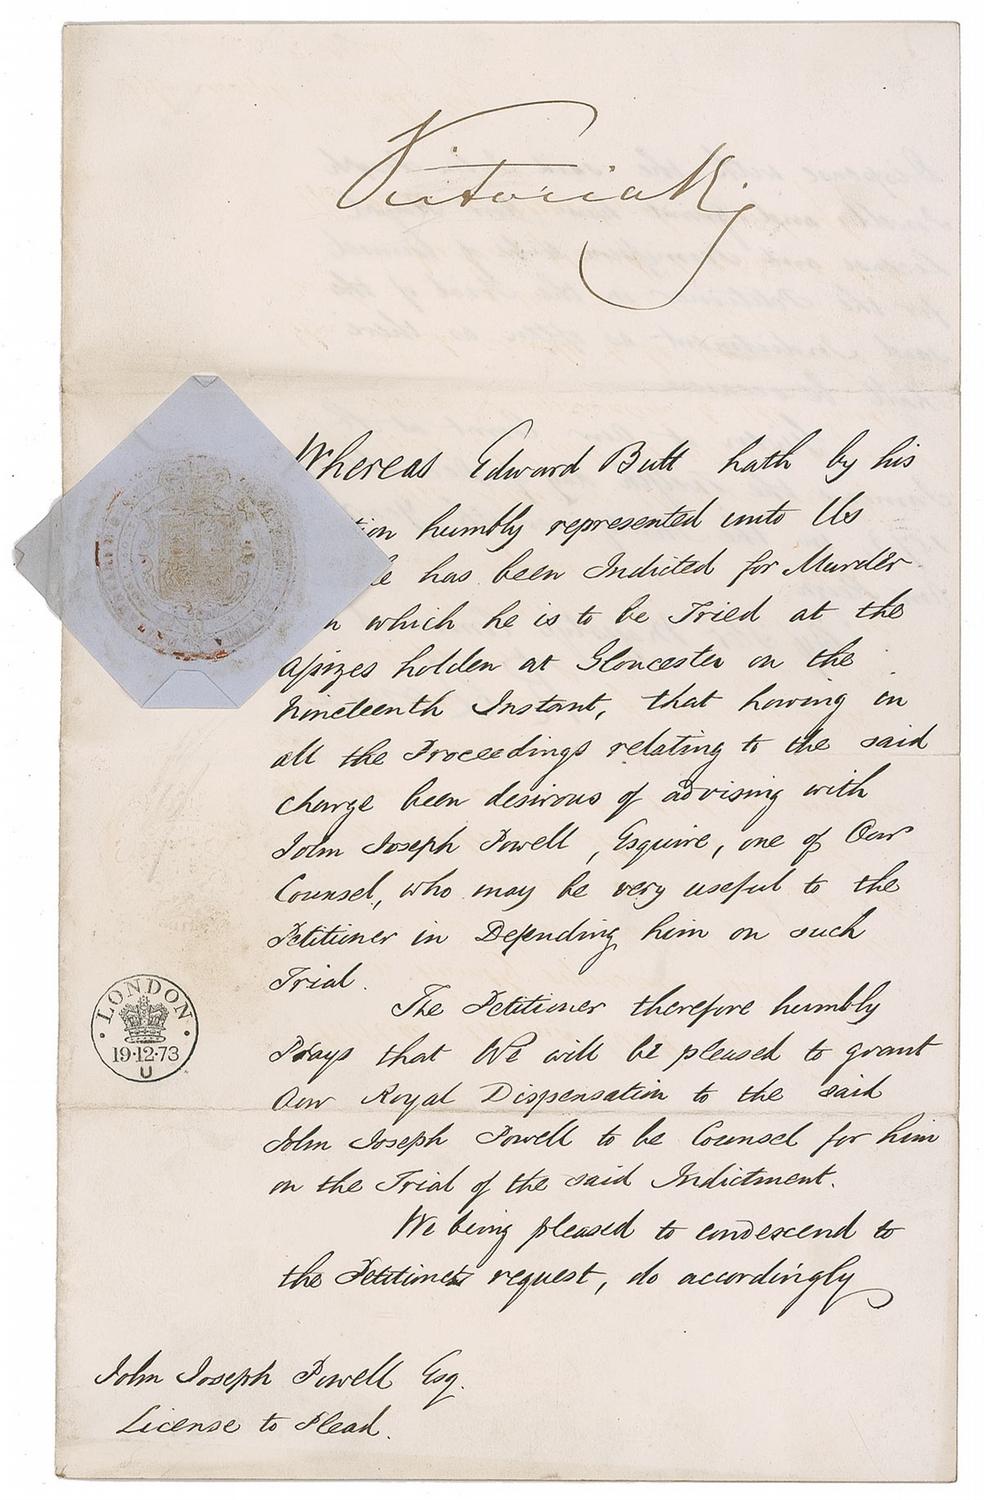 Victoria R
Whereas Edward Butt hath by his
tion humbly represented unto Us
he has been Indicted for Murder
n which he is to be Tried at the
Assizes holden at Gloucester on the
Nineteenth Instant, that having in
all the Proceedings relating to the said
charge been desirous of advising with
John Joseph Powell, Esquire, one of Our
Counsel, who may be very useful to the
Petitioner in Defending him on such
Trial.
The Petitioner therefore humbly
Prays that We will be pleased to grant
Our Royal Dispensation to the said
John Joseph Powell to be Counsel for him
on the Trial of the said Indictment.
We being pleased to condescend to
the Petitioners request, do accordingly
LONDON
19·12·73
U
John Joseph Powell Esq.
License to Plead.